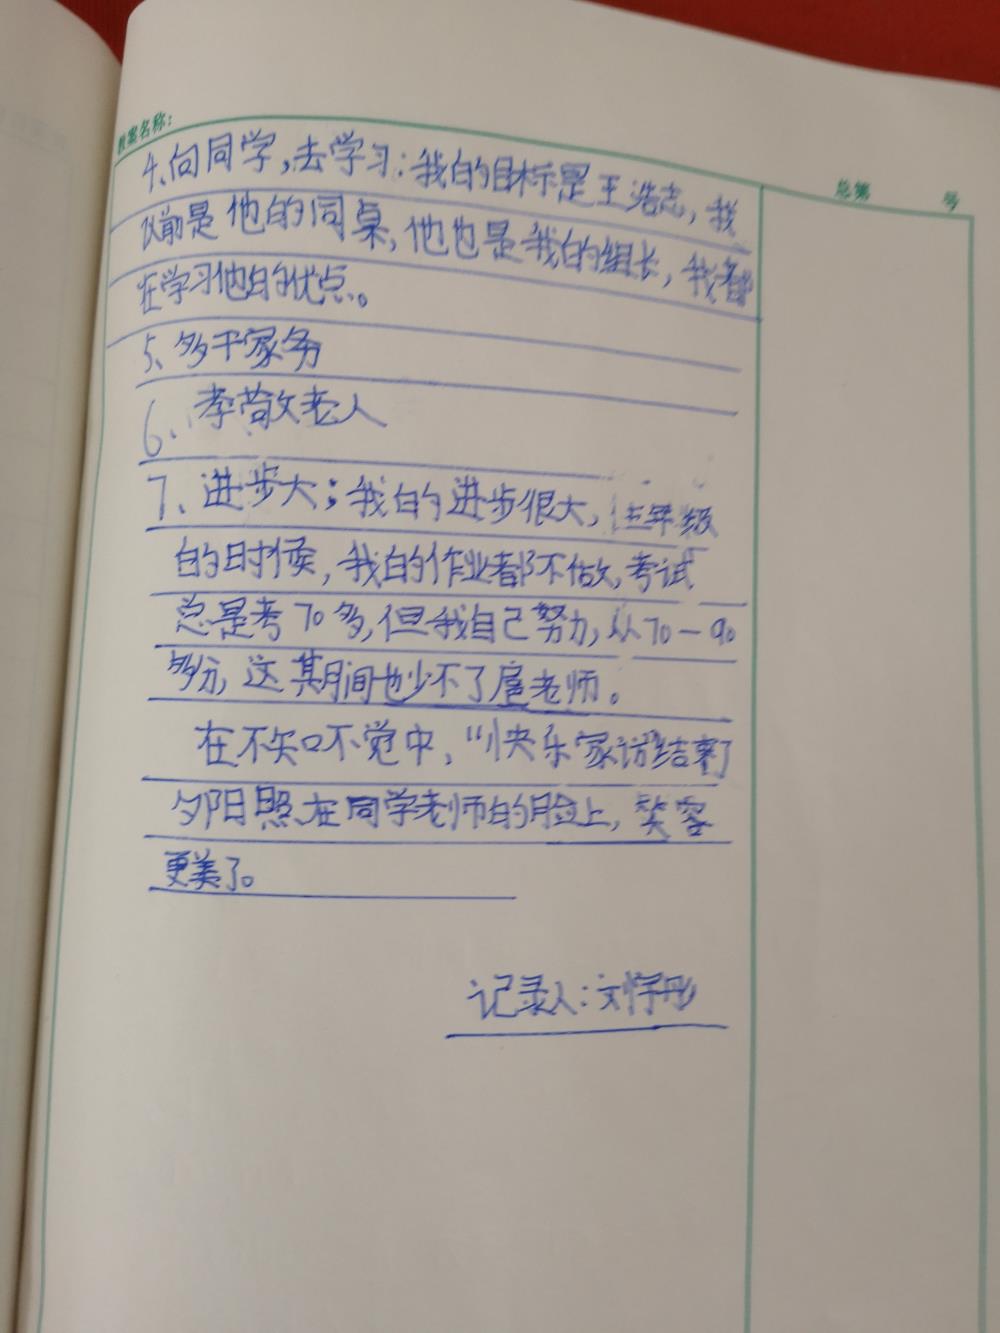 教案名称：
总第 号
4、向同学，去学习：我的目标是王浩志，我
以前是他的同桌，他也是我的组长，我都
在学习他的优点。
5、多干家务
6、孝敬老人
7、进步大；我的进步很大，三年级
的时候，我的作业都不做，考试
总是考70多，但我自己努力，从70一90
多分，这期间也少不了扈老师。
在不知不觉中，“快乐家访”结束了
夕阳照在同学老师的脸上，笑容
更美了。
记录人：刘宇彤